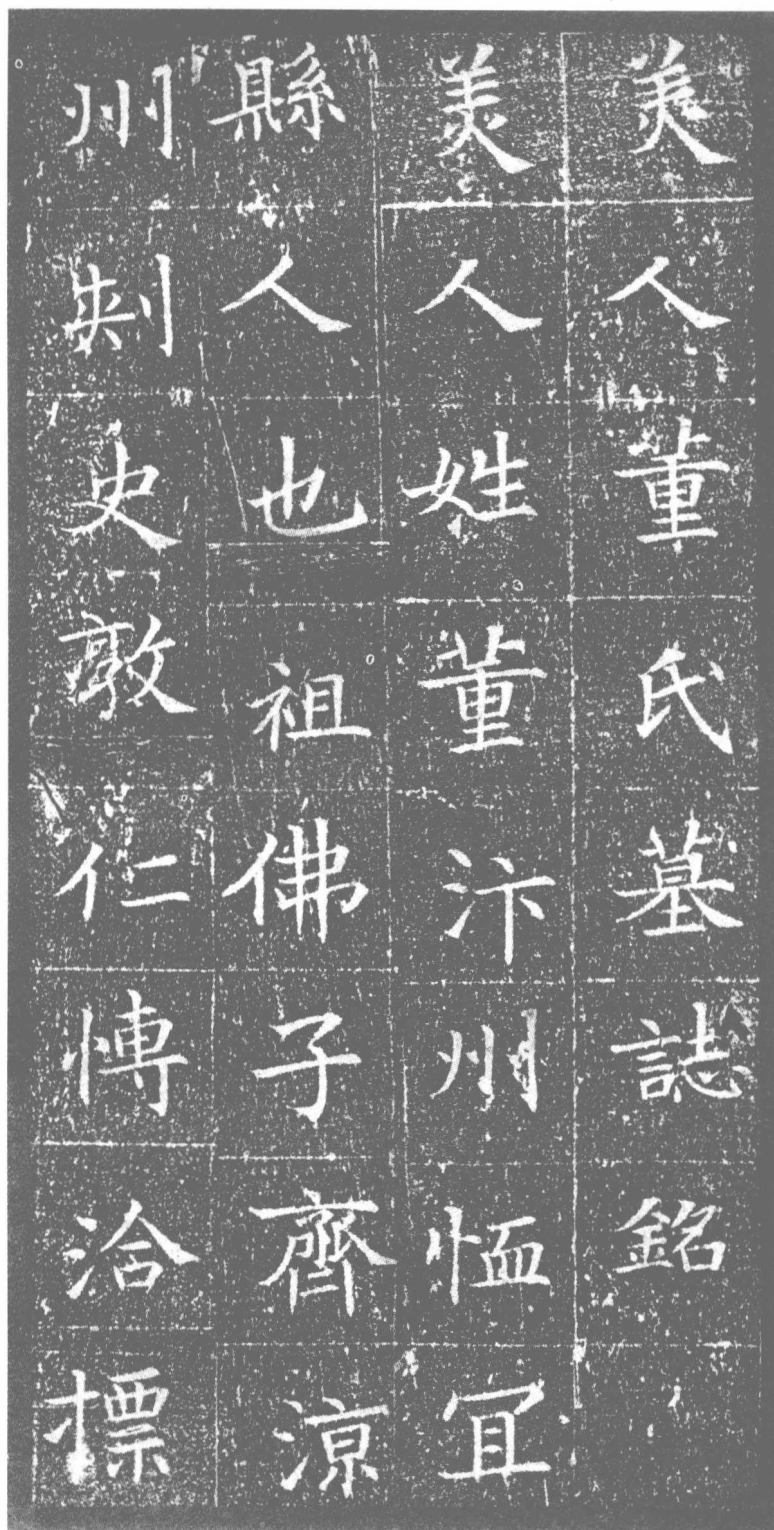 美人董氏墓誌銘
美人姓董汴州恤冝
縣人也祖佛子齊涼
州刾史敦仁愽洽標